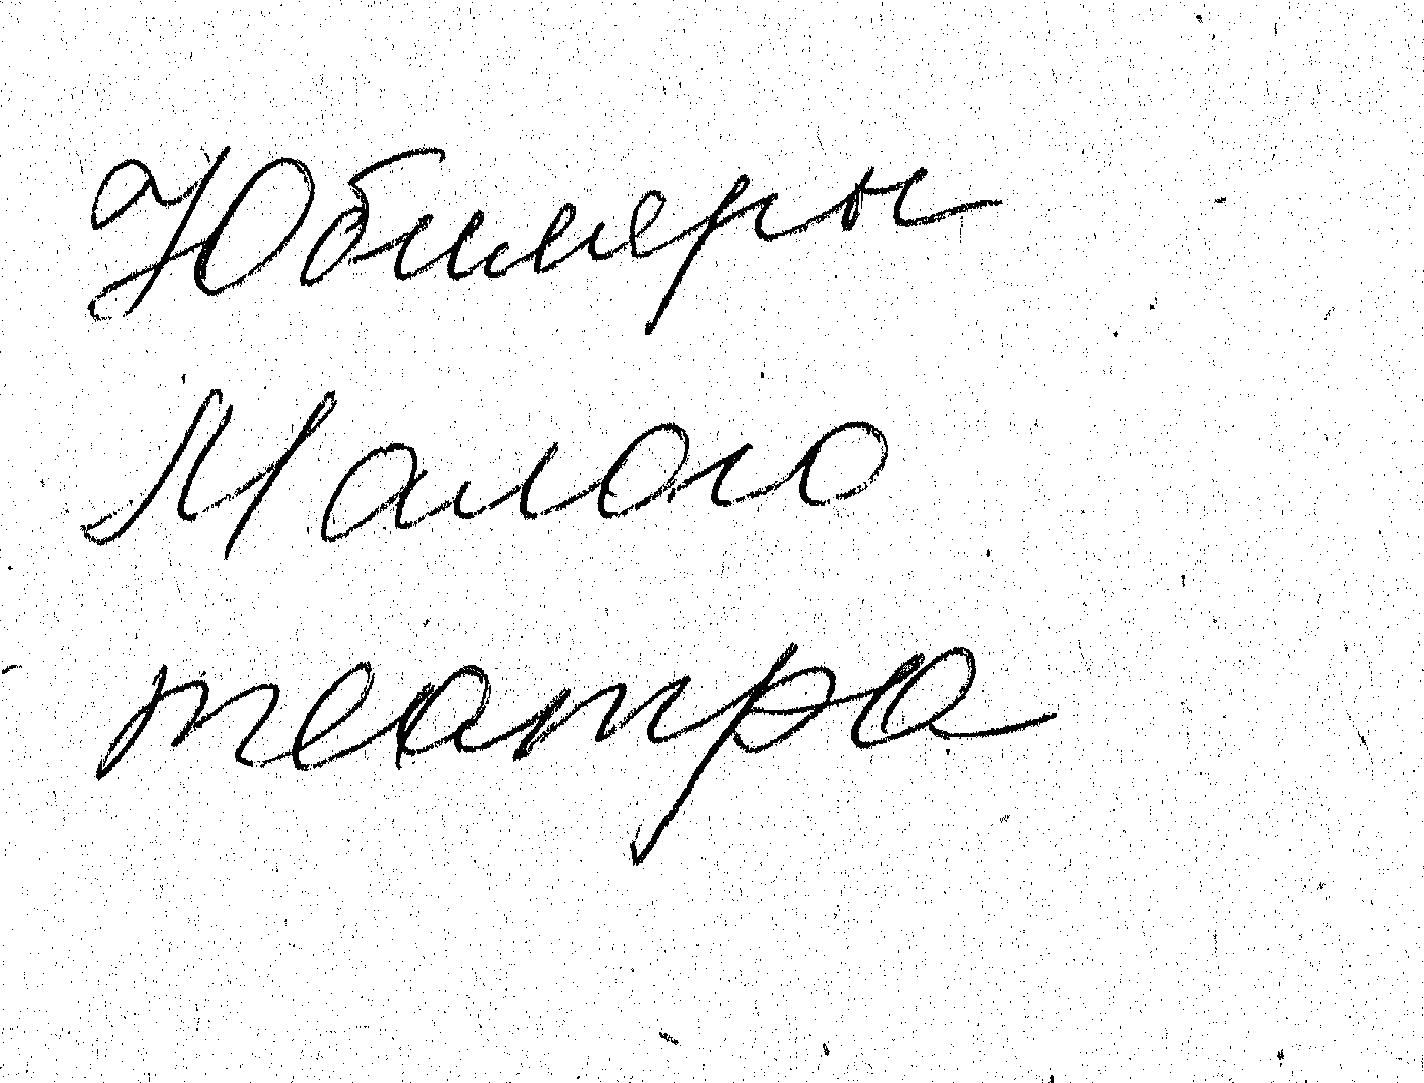 Юбиляры
Малого
театра